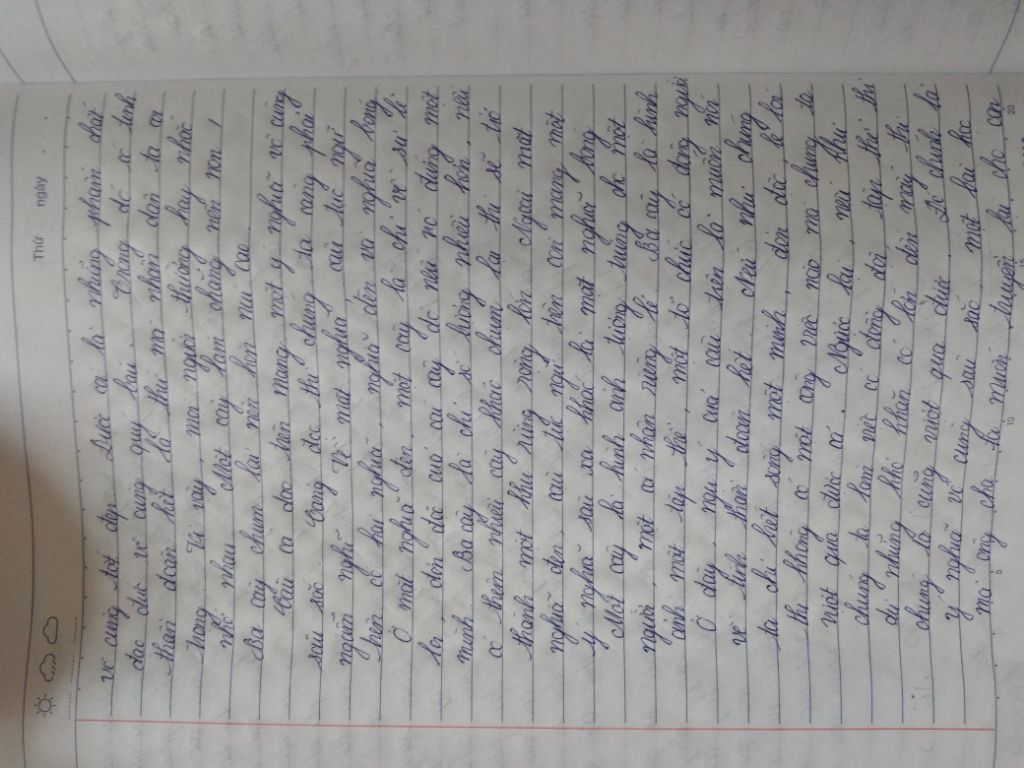 Thứ ngày
vô cùng tốt đẹp. Suốt cả là những phẩm chất
đạo đức vô cùng quý báu. Trong đó có tinh
thần đoàn kết là thứ mà nhân dân ta có
Vì vậy mà người thường hay nhắc
nhở nhau "Một cây làm chẳng nên non
Ba cây chụm lại nên hòn núi cao"
Câu ca dao trên mang một ý nghĩa vô cùng
sâu sắc. Càng đọc thì chúng ta càng phải
ngẫm nghĩ. Vì một nghĩa của tục ngữ
trên có hai nghĩa, nghĩa đen và nghĩa bóng
Ở một nghĩa đen, một cây là chỉ về sự lẻ
loi, đơn độc của cái cây đó nếu nó đứng một
mình. Ba cây là chỉ số lượng nhiều hơn, nếu
có thêm nhiều cây khác chụm lại thì sẽ tạo
thành một khu rừng rộng lớn. Ngoài một
nghĩa đen, câu tục ngữ trên còn mang một
ý nghĩa sâu xa khác là một nghĩa bóng
Một cây là hình ảnh tượng trưng cho một
người, một cá nhân riêng lẻ. Ba cây là hình
ảnh một tập thể, một tổ chức có đông người
Ở đây hàm ý của câu trên là muốn nói
về tinh thần đoàn kết. Nếu như chúng
ta chỉ biết sống một mình, đơn độc, lẻ loi
thì không có một ước mơ nào mà chúng ta
vượt qua được cả. Ngược lại, nếu như
chúng ta làm việc có đồng đội, tập thể thì
dù những khó khăn có lớn đến mấy thì
chúng ta cũng vượt qua được. Đó chính là
ý nghĩa vô cùng sâu sắc, một bài học
mà ông cha ta muốn truyền lại cho con